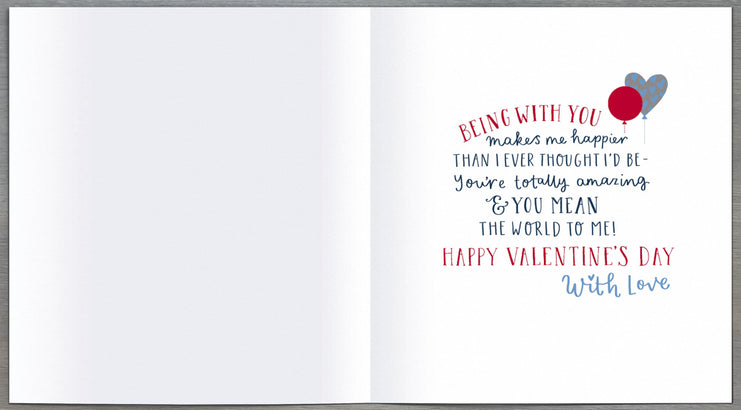 BEING WITH YOU
makes me happier
THAN I EVER THOUGHT I'D BE-
You're totally amazing
& YOU MEAN
THE WORLD TO ME!
HAPPY VALENTINE'S DAY
With Love